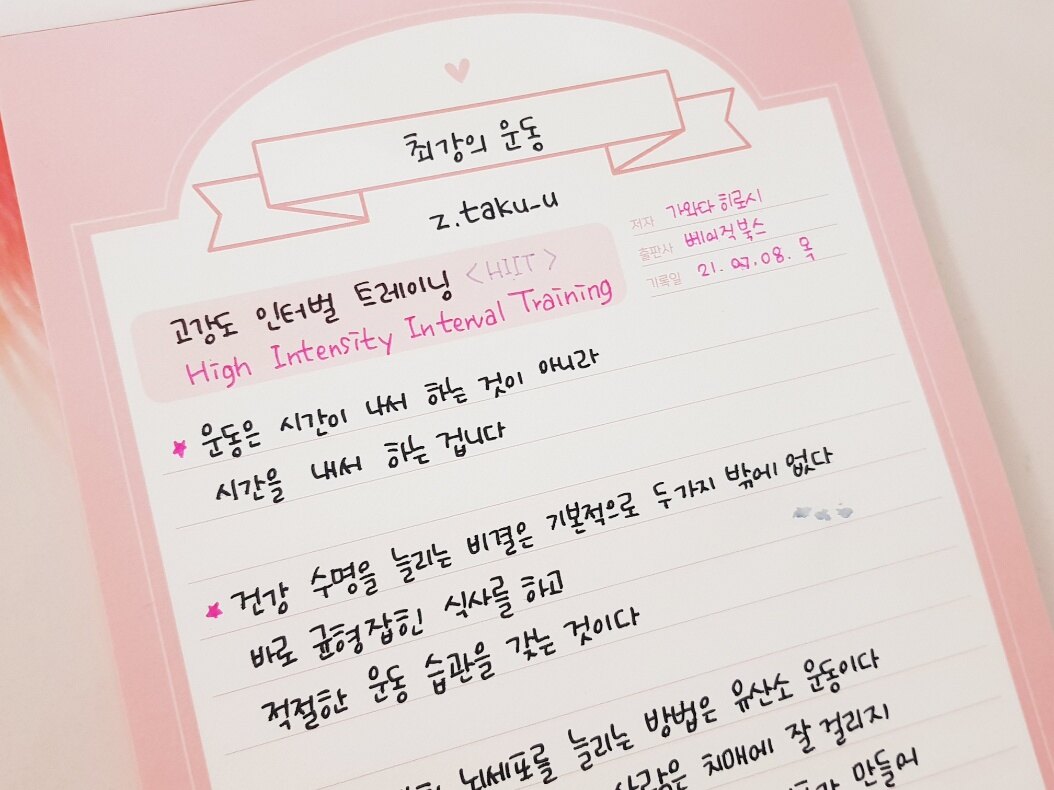 최강의 운동
z.taku_u
저자 가와다 히로시
출판사 베이직북스
기록일 21.07.08. 목
고강도 인터벌 트레이닝 <HIIT>
High Intensity Interval Training
★ 운동은 시간이 나서 하는 것이 아니라
시간을 내서 하는 겁니다
★ 건강 수명을 늘리는 비결은 기본적으로 두가지 밖에 없다
바로 균형잡힌 식사를 하고
적절한 운동 습관을 갖는 것이다
뇌세포를 늘리는 방법은 유산소 운동이다
사람은 치매에 잘 걸리지
만들어